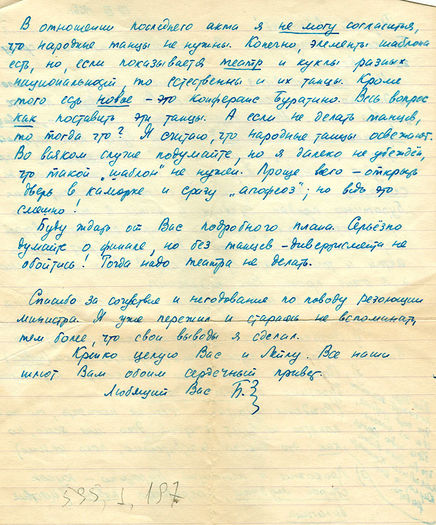 В отношении последнего акта я не могу согласиться,
что народные танцы не нужны. Конечно, элементы шаблона
есть, но, если показывается театр и куклы разных
национальностей то естественны и их танцы. Кроме
того есть новое – это конферанс Буратино. Весь вопрос
как поставить эти танцы. А если не делать танцев,
то тогда что? Я считаю, что народные танцы освежают.
Во всяком случае подумайте, но я далеко не убеждён,
что такой „шаблон" не нужен. Проще всего – открыть
дверь в каморке и сразу „апофеоз"; но ведь это
смешно!
Буду ждать от Вас подробного плана. Серьёзно
думайте о финале, но без танцев – дивертисмента не
обойтись! Тогда надо театра не делать.
Спасибо за сочувствие и негодование по поводу резолюции
министра. Я уже пережил и стараюсь не вспоминать,
тем более, что свои выводы я сделал.
Крепко целую Вас и Лейлу. Все наши
шлют Вам обоим сердечный привет.
Любящий Вас Б.
595, 1, 197